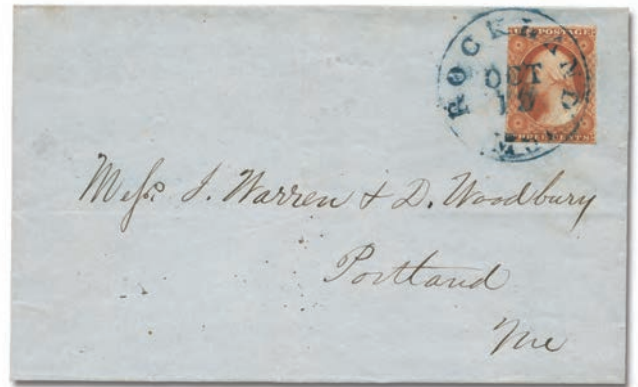 ROCKLAND ME.
OCT
19
POSTAGE
THREE CENTS
Messrs. J. Warren & D. Woodbury
Portland
Me